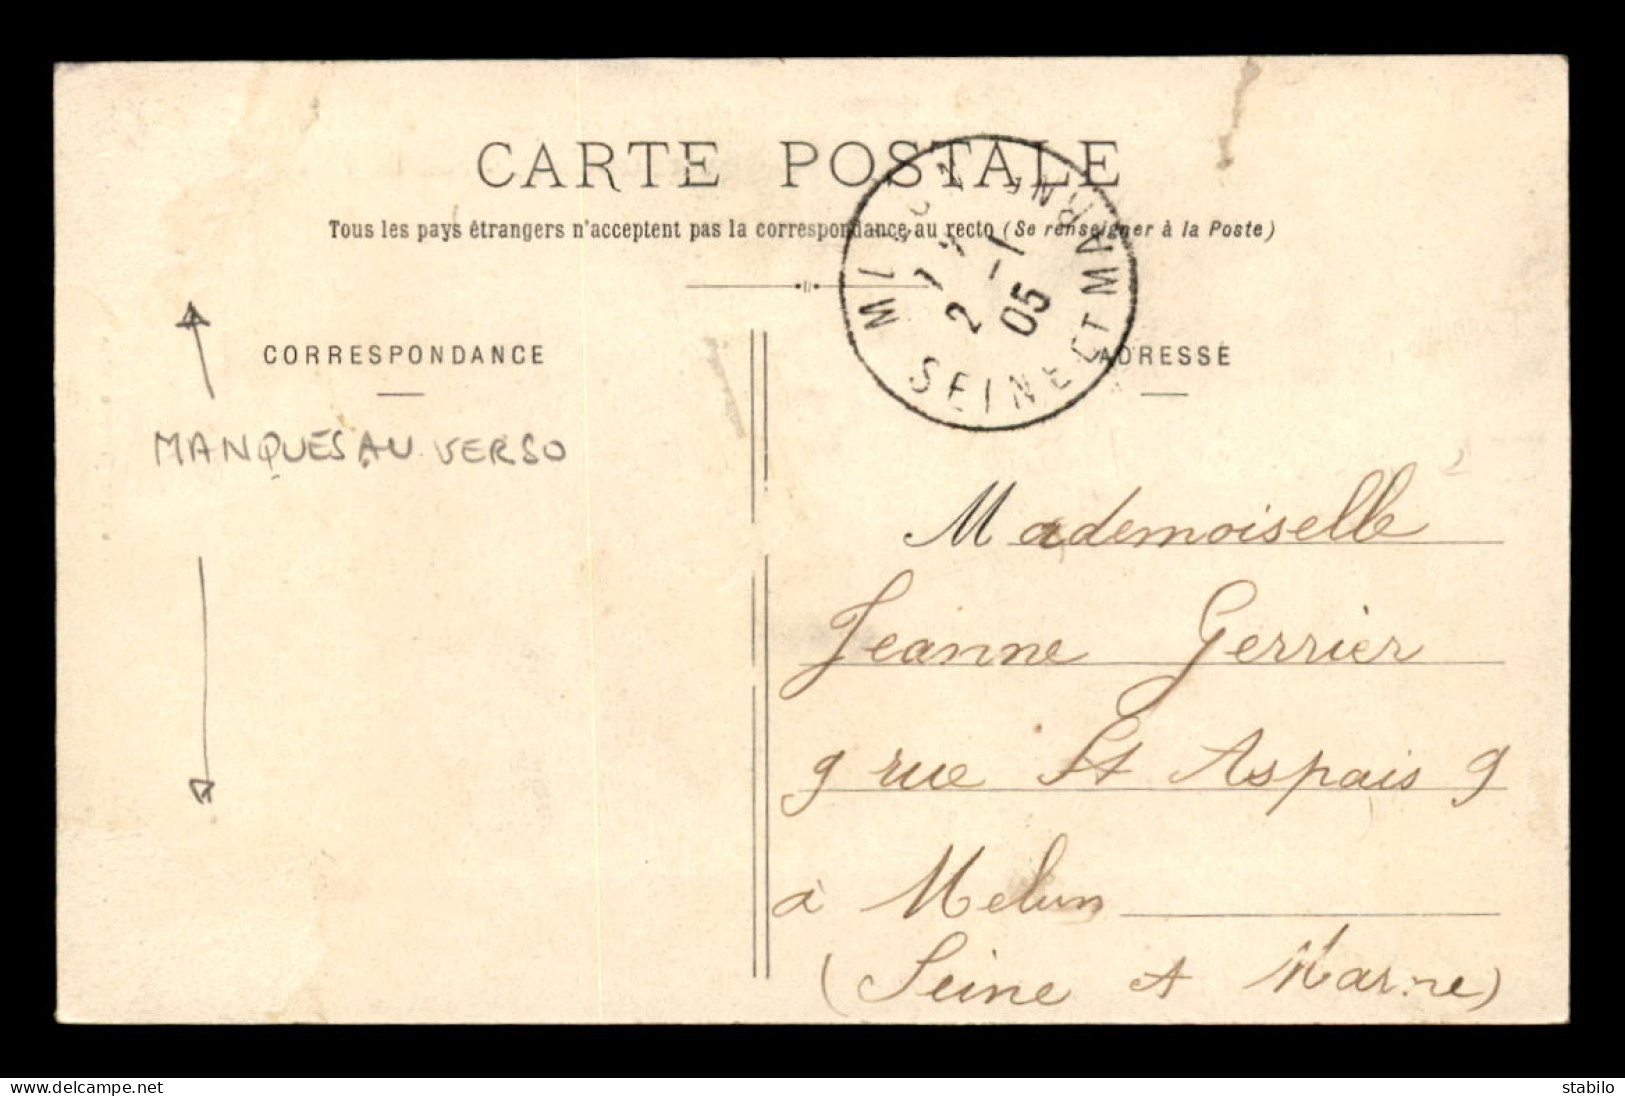 CARTE POSTALE
Tous les pays étrangers n'acceptent pas la correspondance au recto (Se renseigner à la Poste)
SEINE ET MARNE
2 -1
05
CORRESPONDANCE
ADRESSE
MANQUES AU VERSO
Mademoiselle
Jeanne Gerrier
9 rue St Aspais 9
à Melun
(Seine et Marne)
www.delcampe.net
stabilo